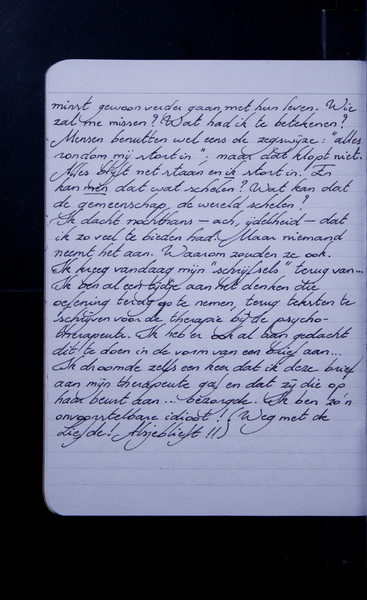 minst gewoon verder gaan met hun leven. Wie
zal me missen? Wat had ik te betekenen?
Mensen benutten wel eens de zegswijze: "alles
rondom mij stort in", maar dat klopt niet.
Alles blijft net staan en ik stort in. En
kan men dat wat schelen? Wat kan dat
de gemeenschap, de wereld schelen?
Ik dacht nochthans — ach, ijdelheid — dat
ik zo veel te bieden had. Maar niemand
neemt het aan. Waarom zouden ze ook.
Ik kreeg vandaag mijn "schrijfsels" terug van...
Ik ben al een tijdje aan het denken die
oefening terug op te nemen, terug teksten te
schrijven voor de therapie bij de psycho-
therapeute. Ik heb er ook al aan gedacht
dit te doen in de vorm van een brief aan...
Ik droomde zelfs een keer dat ik deze brief
aan mijn therapeute gaf en dat zij die op
haar beurt aan ... bezorgde. Ik ben zo'n
onvoorstelbare idioot! (Weg met de
liefde! Alsjeblieft!!)